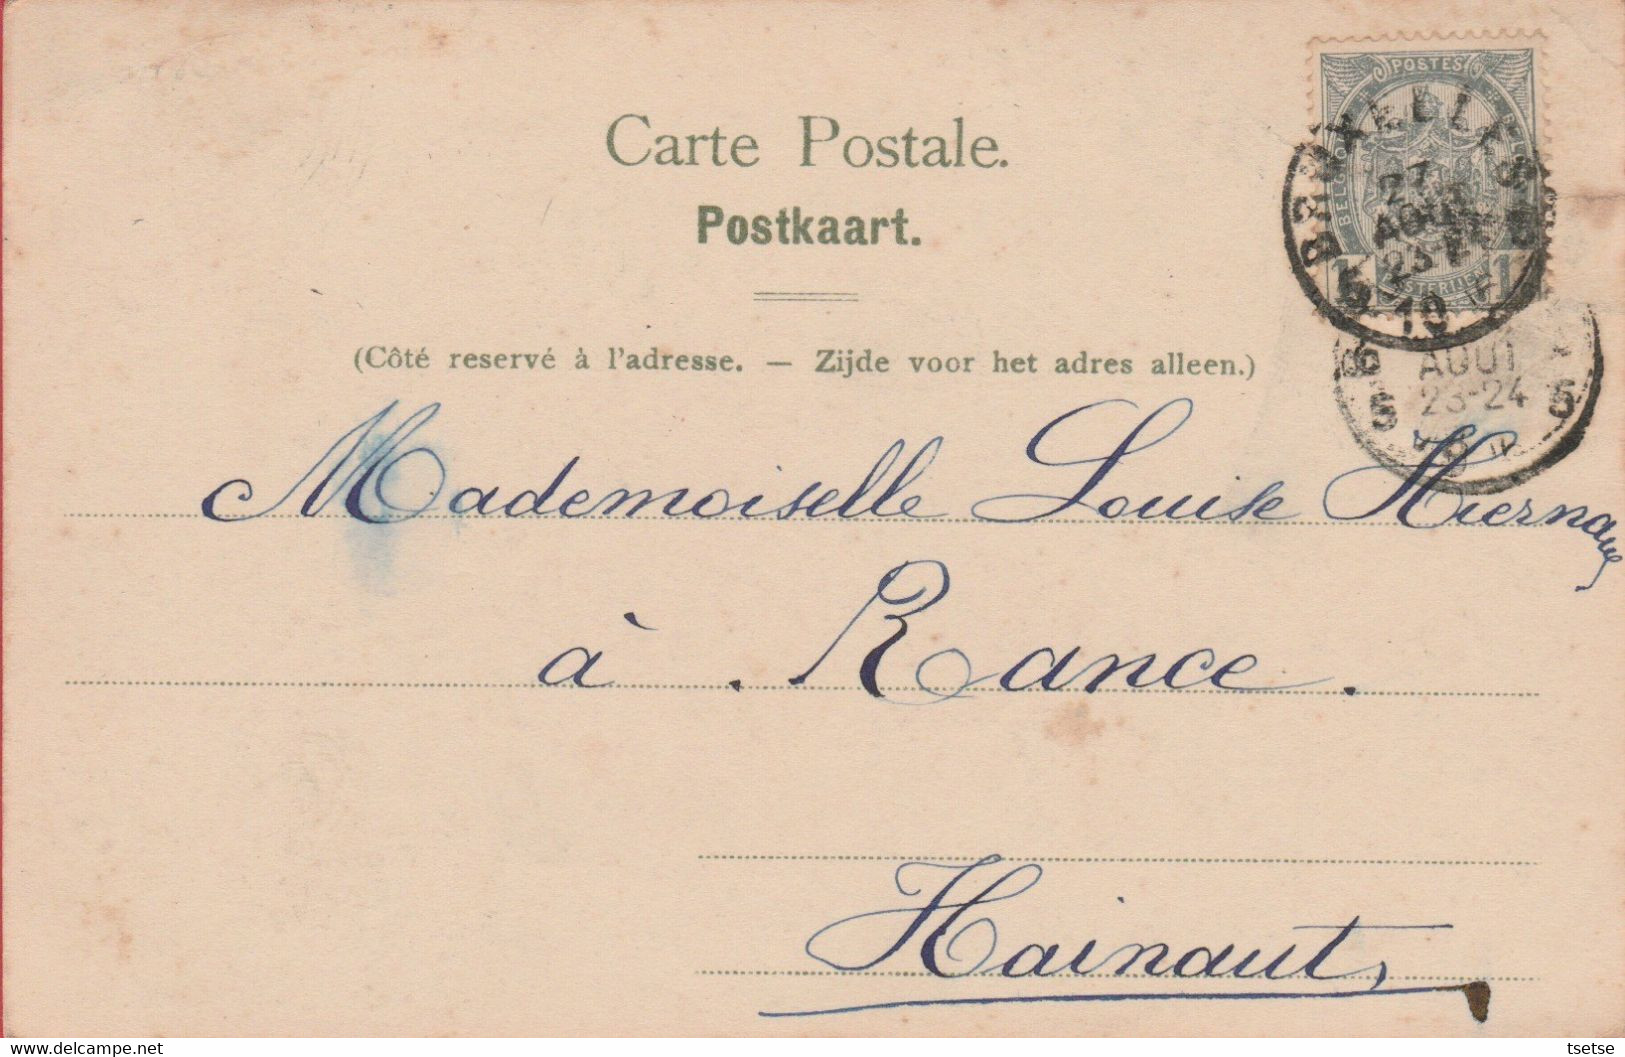 Carte Postale.
Postkaart.
(Côté reservé à l'adresse. — Zijde voor het adres alleen.)
POSTES
BRUXELLES 5
27
AOUT
23-24
19
AOUT
23-24
5 5
Mademoiselle Louise Hiernaux
à . Rance.
Hainaut,
tsetse
Delcampe.net